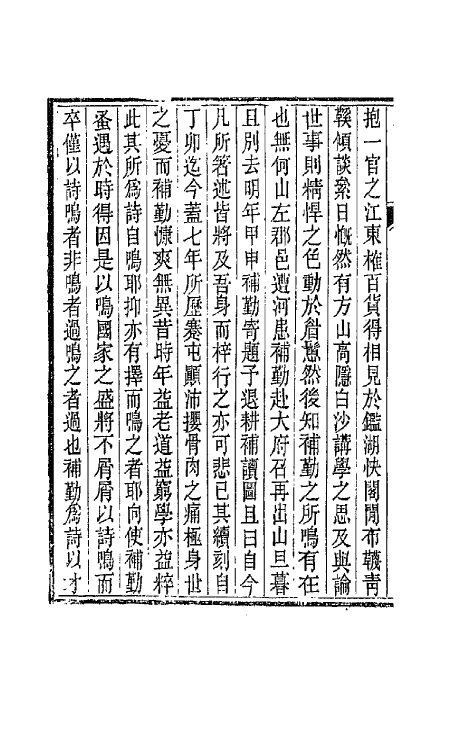 抱一官之江東榷百貨得相見於鑑湖快閣閒布韈青
鞵傾談絫日慨然有方山高隱白沙講學之思及與論
世事則精悍之色動於眉鬢然後知補勤之所鳴有在
也無何山左郡邑遭河患補勤赴大府召再出山旦暮
且別去明年甲申補勤寄題予退耕補讀圖且曰自今
凡所箸述皆將及吾身而梓行之亦可悲已其續刻自
丁卯迄今蓋七年所歷蹇屯顚沛攖骨肉之痛極身世
之憂而補勤慷爽無異昔時年益老道益窮學亦益粹
此其所爲詩自鳴耶抑亦有擇而鳴之者耶向使補勤
蚤遇於時得因是以鳴國家之盛將不屑屑以詩鳴而
卒僅以詩鳴者非鳴者過鳴之者過也補勤爲詩以才